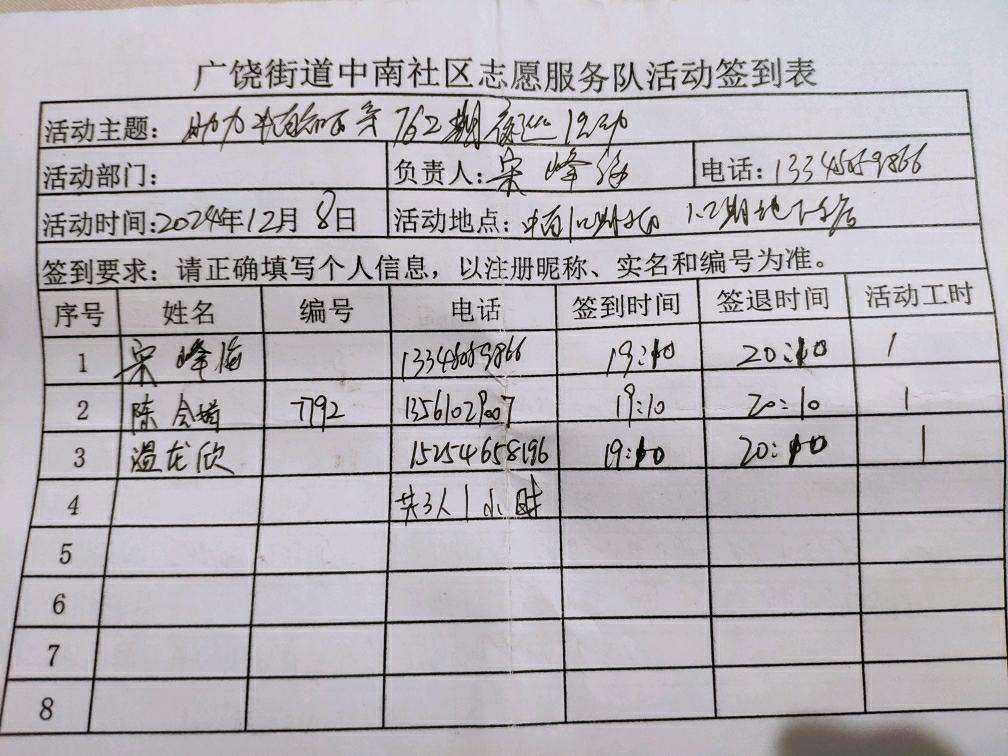 广饶街道中南社区志愿服务队活动签到表
活动主题: 助力 762期夜巡活动
活动部门: 负责人:宋峰海 电话:13346069866
活动时间:2024年12月8日 活动地点: 1.2期地下车库
签到要求：请正确填写个人信息，以注册昵称、实名和编号为准。
序号 姓名 编号 电话 签到时间 签退时间 活动工时
1 宋峰海 13346069866 19:10 20:10 1
2 陈会 7792 13561029007 19:10 20:10 1
3 温龙欣 15254658196 19:10 20:10 1
4 共3人1小时
5
6
7
8